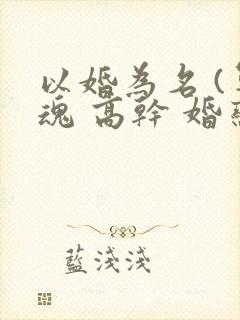 以婚為名(
魂 高幹 婚
藍淺淺